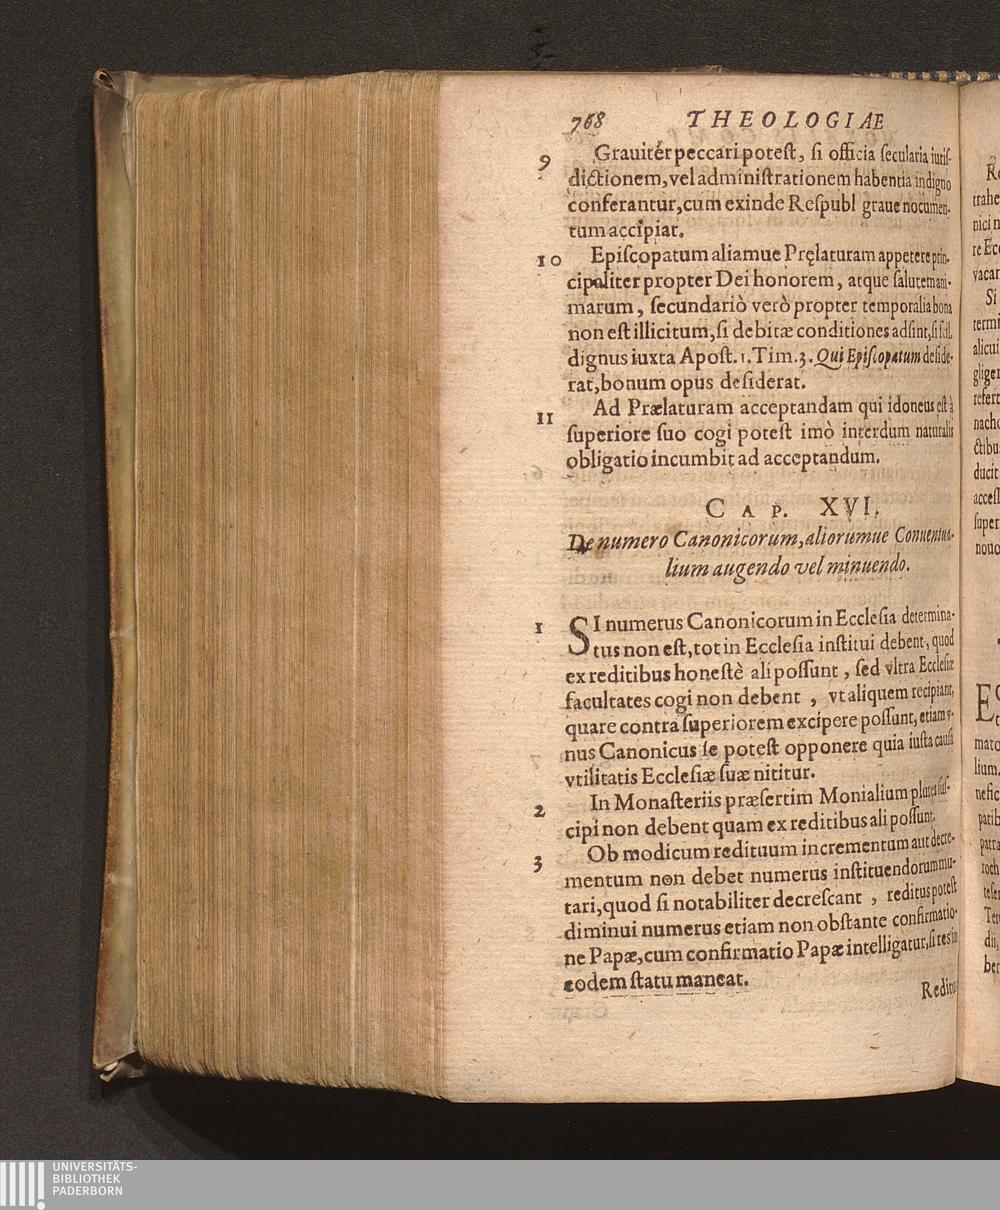 768 THEOLOGIAE
9 Grauiter peccari potest, si officia secularia iuris-
dictionem, vel administrationem habentia indigno
conferantur, cum exinde Respubl graue nocumen-
tum accipiat.
10 Episcopatum aliamue Pręlaturam appetere prin-
cipaliter propter Dei honorem, atque salutem ani-
marum, secundariò verò propter temporalia bona
non est illicitum, si debitæ conditiones adsint, si scil.
dignus iuxta Apost. 1. Tim. 3. Qui Episcopatum deside-
rat, bonum opus desiderat.
11 Ad Prælaturam acceptandam qui idoneus est à
superiore suo cogi potest imò interdum naturalis
obligatio incumbit ad acceptandum.
CAP. XVI.
De numero Canonicorum, aliorumue Conuentua-
lium augendo vel minuendo.
1 SI numerus Canonicorum in Ecclesia determina-
tus non est, tot in Ecclesia institui debent, quod
ex reditibus honestè ali possunt, sed vltra Ecclesiæ
facultates cogi non debent, vt aliquem recipiant,
quare contra superiorem excipere possunt, etiam v-
nus Canonicus se potest opponere quia iusta causa
vtilitatis Ecclesiæ suæ nititur.
2 In Monasteriis præsertim Monialium plures sus-
cipi non debent quam ex reditibus ali possunt.
3 Ob modicum redituum incrementum aut decre-
mentum non debet numerus instituendorum mu-
tari, quod si notabiliter decrescant, reditus potest
diminui numerus etiam non obstante confirmatio-
ne Papæ, cum confirmatio Papæ intelligatur, si res in
eodem statu maneat.
Reditus
UNIVERSITÄTS-
BIBLIOTHEK
PADERBORN